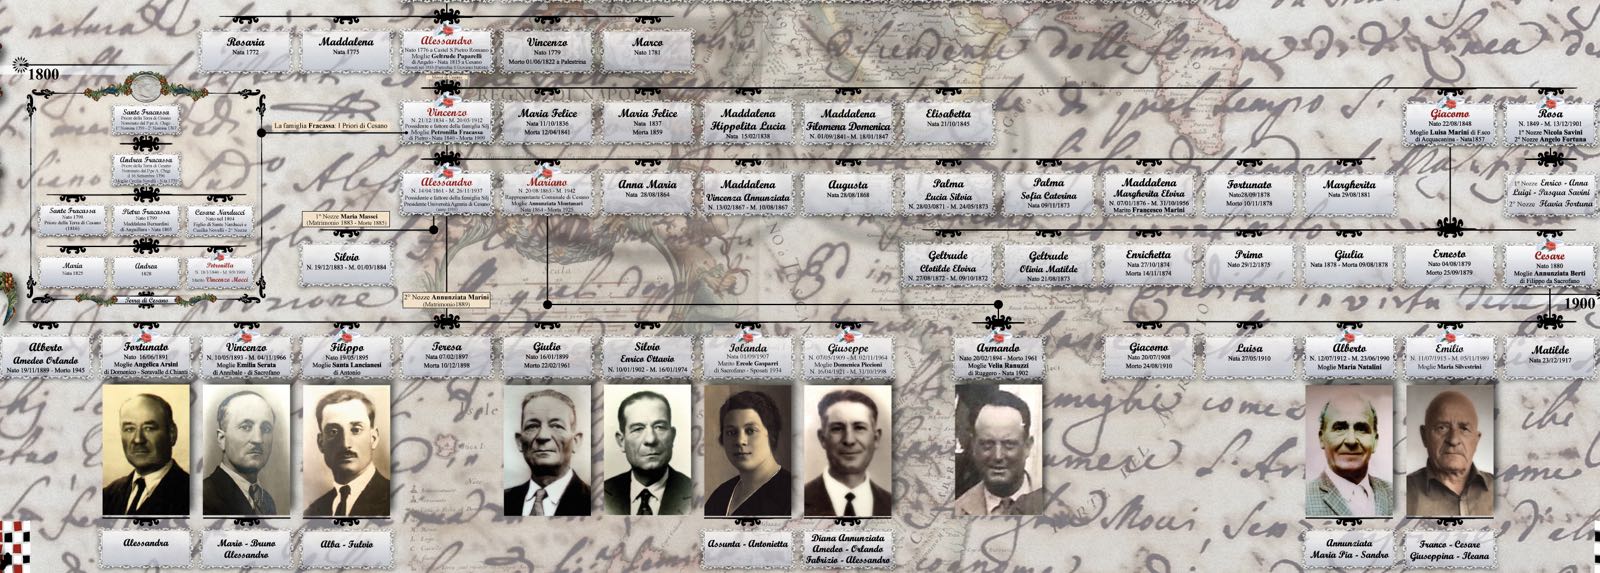 Rosaria
Nata 1772
Maddalena
Nata 1775
Alessandro
Nato 1776 a Castel S.Pietro Romano
Moglie Geltrude Paparelli
di Angelo - Nata 1815 a Cesano
Vincenzo
Nato 1779
Morto 01/06/1822 a Palestrina
Marco
Nato 1781
1800
REGNO DI NAPO
Sante Fracassa
Priore della Terra di Cesano
Andrea Fracassa
Priore della Terra di Cesano
Sante Fracassa
Nato 1798
Priore della Terra di Cesano
(1816)
Pietro Fracassa
Nato 1799
Maddalena Bernardini
di Anguillara - Nata 1803
Cesare Narducci
Nato nel 1804
Figlio di Sante Narducci e
Cecilia Novelli - 2° Nozze
Maria
Nata 1825
Andrea
1828
Petronilla
Marito Vincenzo Mocci
Terra di Cesano
La famiglia Fracassa: I Priori di Cesano
Vincenzo
N. 21/12/1834 - M. 20/03/1912
Presidente e fattore della famiglia Silj
Moglie Petronilla Fracassa
di Pietro - Nata 1840 - Morta 1909
Maria Felice
Nata 11/10/1836
Morta 12/04/1841
Maria Felice
Nata 1837
Morta 1859
Maddalena
Hippolita Lucia
Nata 15/02/1838
Maddalena
Filomena Domenica
N. 01/09/1841 - M. 18/01/1847
Elisabetta
Nata 21/10/1845
Giacomo
Nato 22/08/1848
Moglie Luisa Marini di F.sco
di Acquacanina - Nata1857
Rosa
N. 1849 - M. 13/12/1901
1° Nozze Nicola Savini
2° Nozze Angelo Fortuna
Alessandro
N. 14/04/1861 - M. 26/11/1937
Presidente e fattore della famiglia Silj
Presidente Università Agraria di Cesano
Mariano
N. 20/08/1863 - M. 1942
Rappresentante Comunale di Cesano
Moglie Annunziata Montanari
Nata 1864 - Morta 1925
Anna Maria
Nata 28/08/1864
Maddalena
Vincenza Annunziata
N. 13/02/1867 - M. 10/08/1867
Augusta
Nata 28/08/1868
Palma
Lucia Silvia
N. 28/03/1871 - M. 24/05/1873
Palma
Sofia Caterina
Nata 09/11/1873
Maddalena
Margherita Elvira
N. 07/01/1876 - M. 31/10/1956
Marito Francesco Marini
Fortunato
Nato28/09/1878
Morto 10/11/1878
Margherita
Nata 29/08/1881
1° Nozze Enrico - Anna
Luigi - Pasqua Savini
2° Nozze Flavia Fortuna
1° Nozze Maria Massei
(Matrimonio 1883 - Morte 1885)
Silvio
N. 19/12/1883 - M. 01/03/1884
Geltrude
Clotilde Elvira
N. 27/08/1872 - M. 09/10/1872
Geltrude
Olivia Matilde
Nata 21/08/1873
Enrichetta
Nata 27/10/1874
Morta 14/11/1874
Primo
Nato 29/12/1875
Giulia
Nata 1878 - Morta 09/08/1878
Ernesto
Nato 04/08/1879
Morto 25/09/1879
Cesare
Nato 1880
Moglie Annunziata Berti
di Filippo da Sacrofano
2° Nozze Annunziata Marini
(Matrimonio1889)
1900
Alberto
Amedeo Orlando
Nato 19/11/1889 - Morto 1945
Fortunato
Nato 16/06/1891
Moglie Angelica Arsini
di Domenico - Serravalle d.Chianti
Vincenzo
N. 10/05/1893 - M. 04/11/1966
Moglie Emilia Serata
di Annibale - di Sacrofano
Filippo
Nato 19/05/1895
Moglie Santa Lancianesi
di Antonio
Teresa
Nata 07/02/1897
Morta 10/12/1898
Giulio
Nato 16/01/1899
Morto 22/02/1961
Silvio
Enrico Ottavio
N. 10/01/1902 - M. 16/01/1974
Iolanda
Nata 01/09/1907
Marito Ercole Gaspari
di Sacrofano - Sposati 1934
Giuseppe
N. 07/05/1909 - M. 02/11/1964
Moglie Domenica Piccioni
N. 16/04/1921 - M. 31/10/1998
Armando
Nato 20/02/1894 - Morto 1961
Moglie Velia Ranuzzi
di Ruggero - Nata 1902
Giacomo
Nato 20/07/1908
Morto 24/08/1910
Luisa
Nata 27/05/1910
Alberto
N. 12/07/1912 - M. 23/06/1990
Moglie Maria Natalini
Emilio
N. 11/07/1915 - M. 05/11/1989
Moglie Maria Silvestrini
Matilde
Nata 23/12/1917
Alessandra
Mario - Bruno
Alessandro
Alba - Fulvio
Assunta - Antonietta
Diana Annunziata
Amedeo - Orlando
Fabrizio - Alessandro
Annunziata
Maria Pia - Sandro
Franco - Cesare
Giuseppina - Ileana